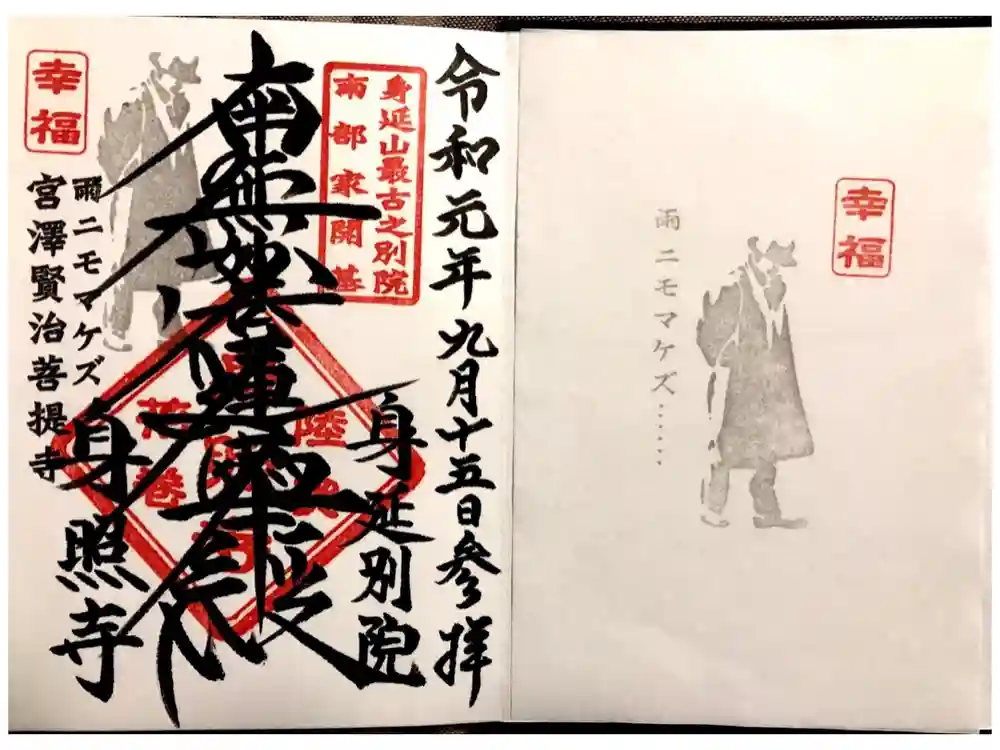 令和元年九月十五日参拝
身延山最古之別院
南部家開基
身延別院
南無妙法蓮華経
身照寺
雨ニモマケズ
宮澤賢治菩提寺
幸福
陸
花巻
幸福
雨ニモマケズ……